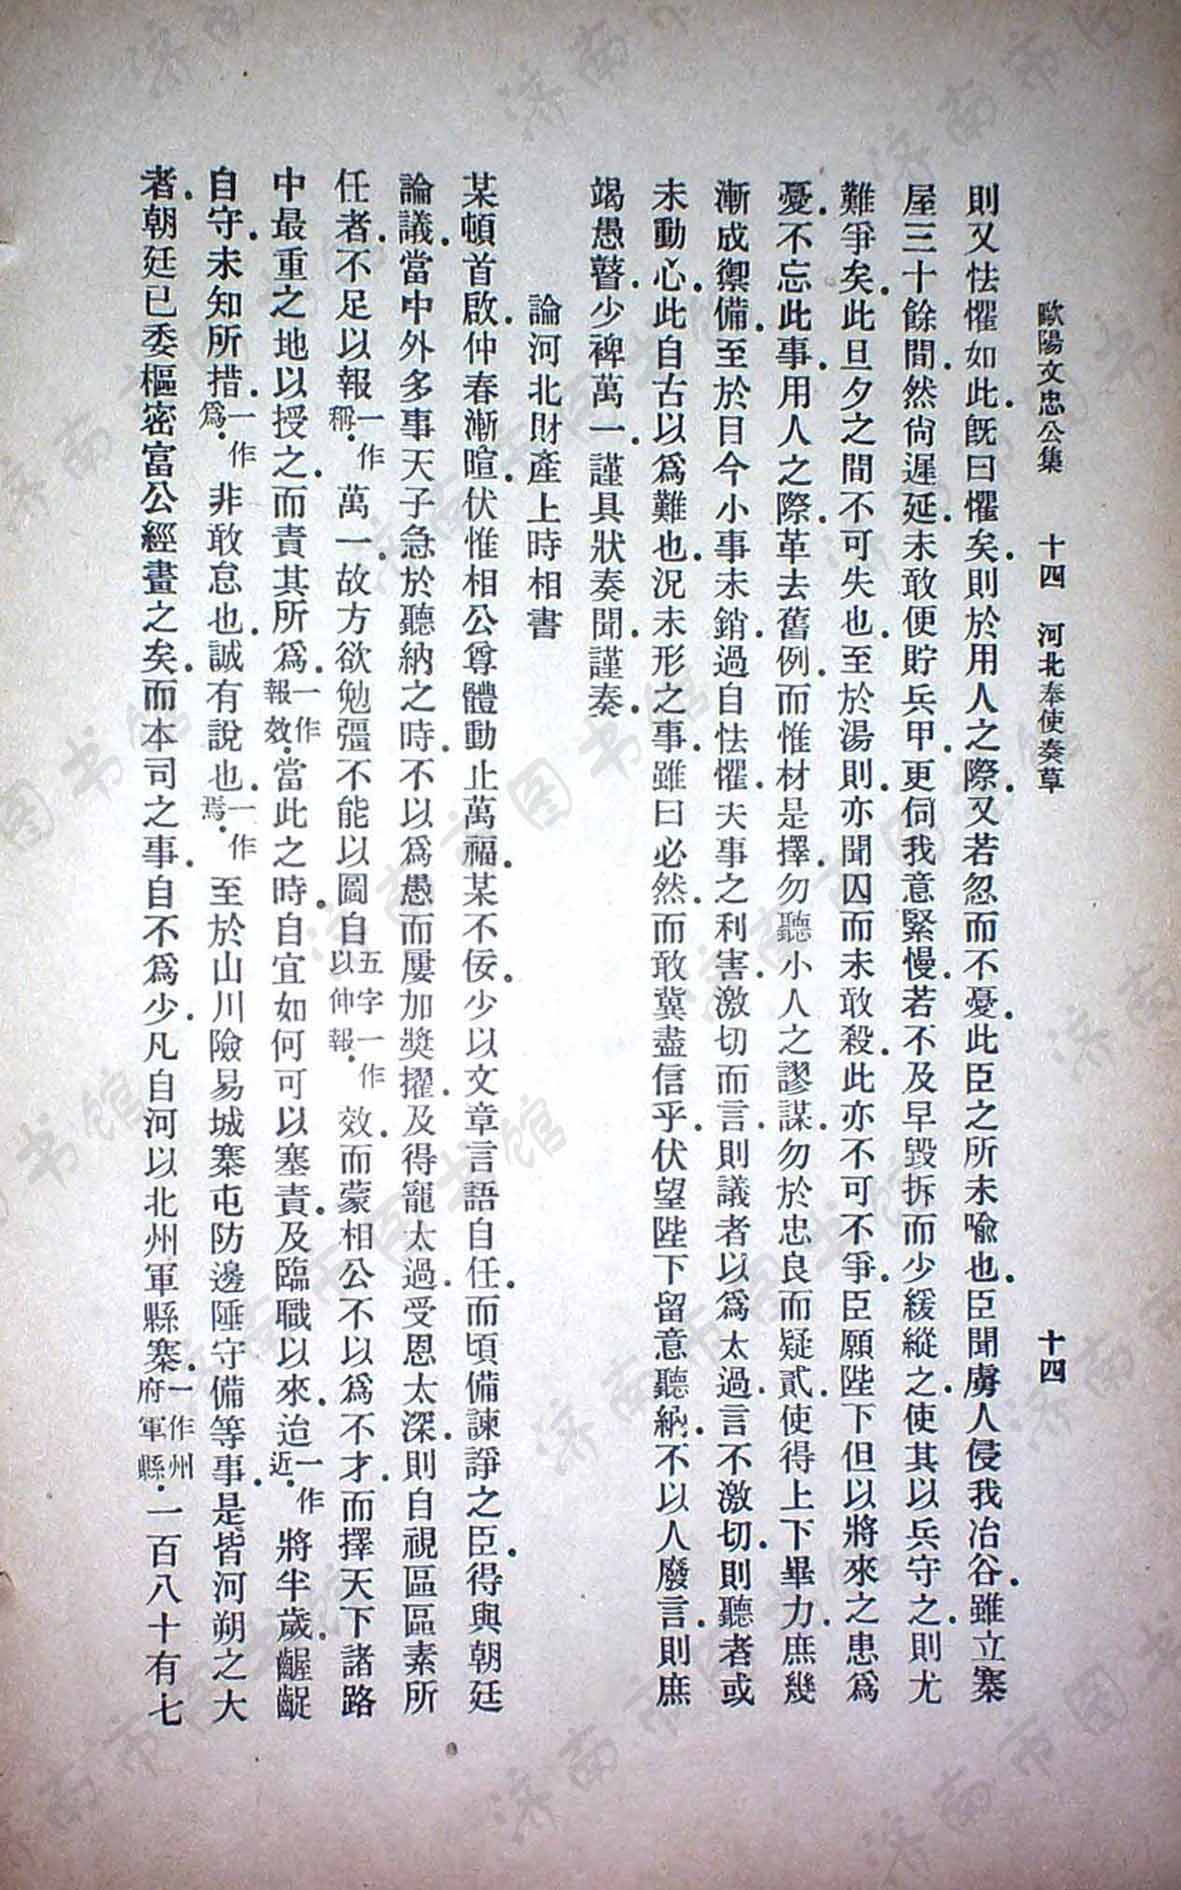 歐陽文忠公集　十四　河北奉使奏草　十四
則又怯懼如此．既曰懼矣．則於用人之際．又若忽而不憂．此臣之所未喻也．臣聞虜人侵我冶谷．雖立寨
屋三十餘間．然尙遲延．未敢便貯兵甲．更伺我意緊慢．若不及早毀拆．而少緩縱之．使其以兵守之．則尤
難爭矣．此旦夕之間．不可失也．至於湯則．亦聞囚而未敢殺．此亦不可不爭．臣願陛下但以將來之患爲
憂．不忘此事．用人之際．革去舊例．而惟材是擇．勿聽小人之謬謀．勿於忠良而疑貳．使得上下畢力．庶幾
漸成禦備．至於目今小事未銷．過自怯懼．夫事之利害．激切而言．則議者以爲太過．言不激切．則聽者或
未動心．此自古以爲難也．況未形之事．雖曰必然．而敢冀盡信乎．伏望陛下留意聽納．不以人廢言．則庶
竭愚瞽．少裨萬一．謹具狀奏聞．謹奏．
論河北財產上時相書
某頓首啟．仲春漸暄．伏惟相公尊體動止萬福．某不佞．少以文章言語自任．而頃備諫諍之臣．得與朝廷
論議．當中外多事．天子急於聽納之時．不以爲愚而屢加獎擢．及得寵太過．受恩太深．則自視區區素所
任者．不足以報一作稱．萬一．故方欲勉彊不能以圖自五字一作以伸報．效．而蒙相公不以爲不才．而擇天下諸路
中最重之地以授之．而責其所爲．一作報效．當此之時．自宜如何可以塞責．及臨職以來．迨一作近．將半歲．齷齪
自守．未知所措．一作爲．非敢怠也．誠有說也．一作焉．至於山川險易．城寨屯防．邊陲守備等事．是皆河朔之大
者．朝廷已委樞密富公經畫之矣．而本司之事．自不爲少．凡自河以北州軍縣寨．一作州府軍縣．一百八十有七